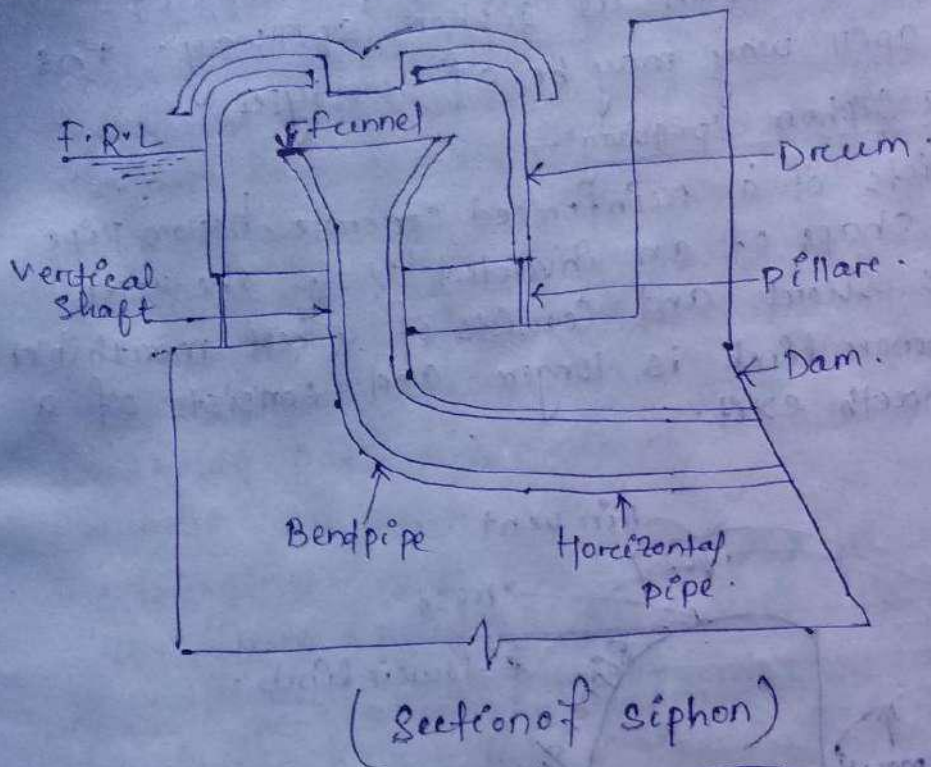 F.R.L
Funnel
Drcum.
Vertical
Shaft
Pillarc.
Dam.
Bendpipe
Horcizontal
pipe.
(Section of siphon)